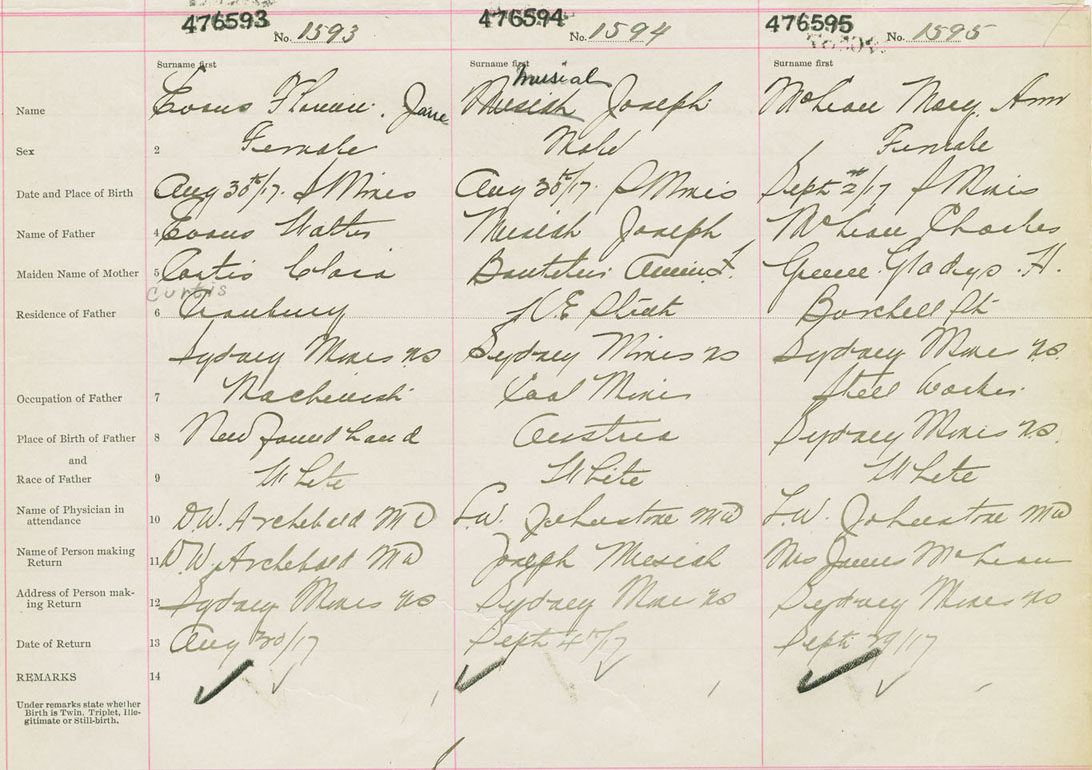 476593 476594 476595
No. 1593 No. 1594 No. 1595
Surname first Surname first Surname first
Musial
Name Evans Jane Musiah Joseph McLean Mary Ann
Sex 2 Female Male Female
Date and Place of Birth Aug 30th/17. S Mines Aug 30th/17. S Mines Sept 2nd/17 S Mines
Name of Father 4 Evans Walter Musiah Joseph McLean Charles
Maiden Name of Mother 5 Clara Greene Gladys. H.
Curtis
Residence of Father 6 Cranbury Street Burchell St
Sydney Mines NS Sydney Mines NS Sydney Mines NS.
Occupation of Father 7 Machinist Coal Miner Steel Worker
Place of Birth of Father 8 Newfoundland Austria Sydney Mines N.S.
and
Race of Father 9 White White White
Name of Physician in
attendance 10 D.W. Archibald MD L.W. Johnstone MD L.W. Johnstone MD
Name of Person making
Return 11 D.W. Archibald MD Joseph Mesiah Mrs James McLean
Address of Person mak-
ing Return 12 Sydney Mines NS Sydney Mines NS Sydney Mines NS
Date of Return 13 Aug 30/17 Sept 4th/17 Sept 29/17
REMARKS 14
Under remarks state whether
Birth is Twin. Triplet, Ille-
gitimate or Still-birth.